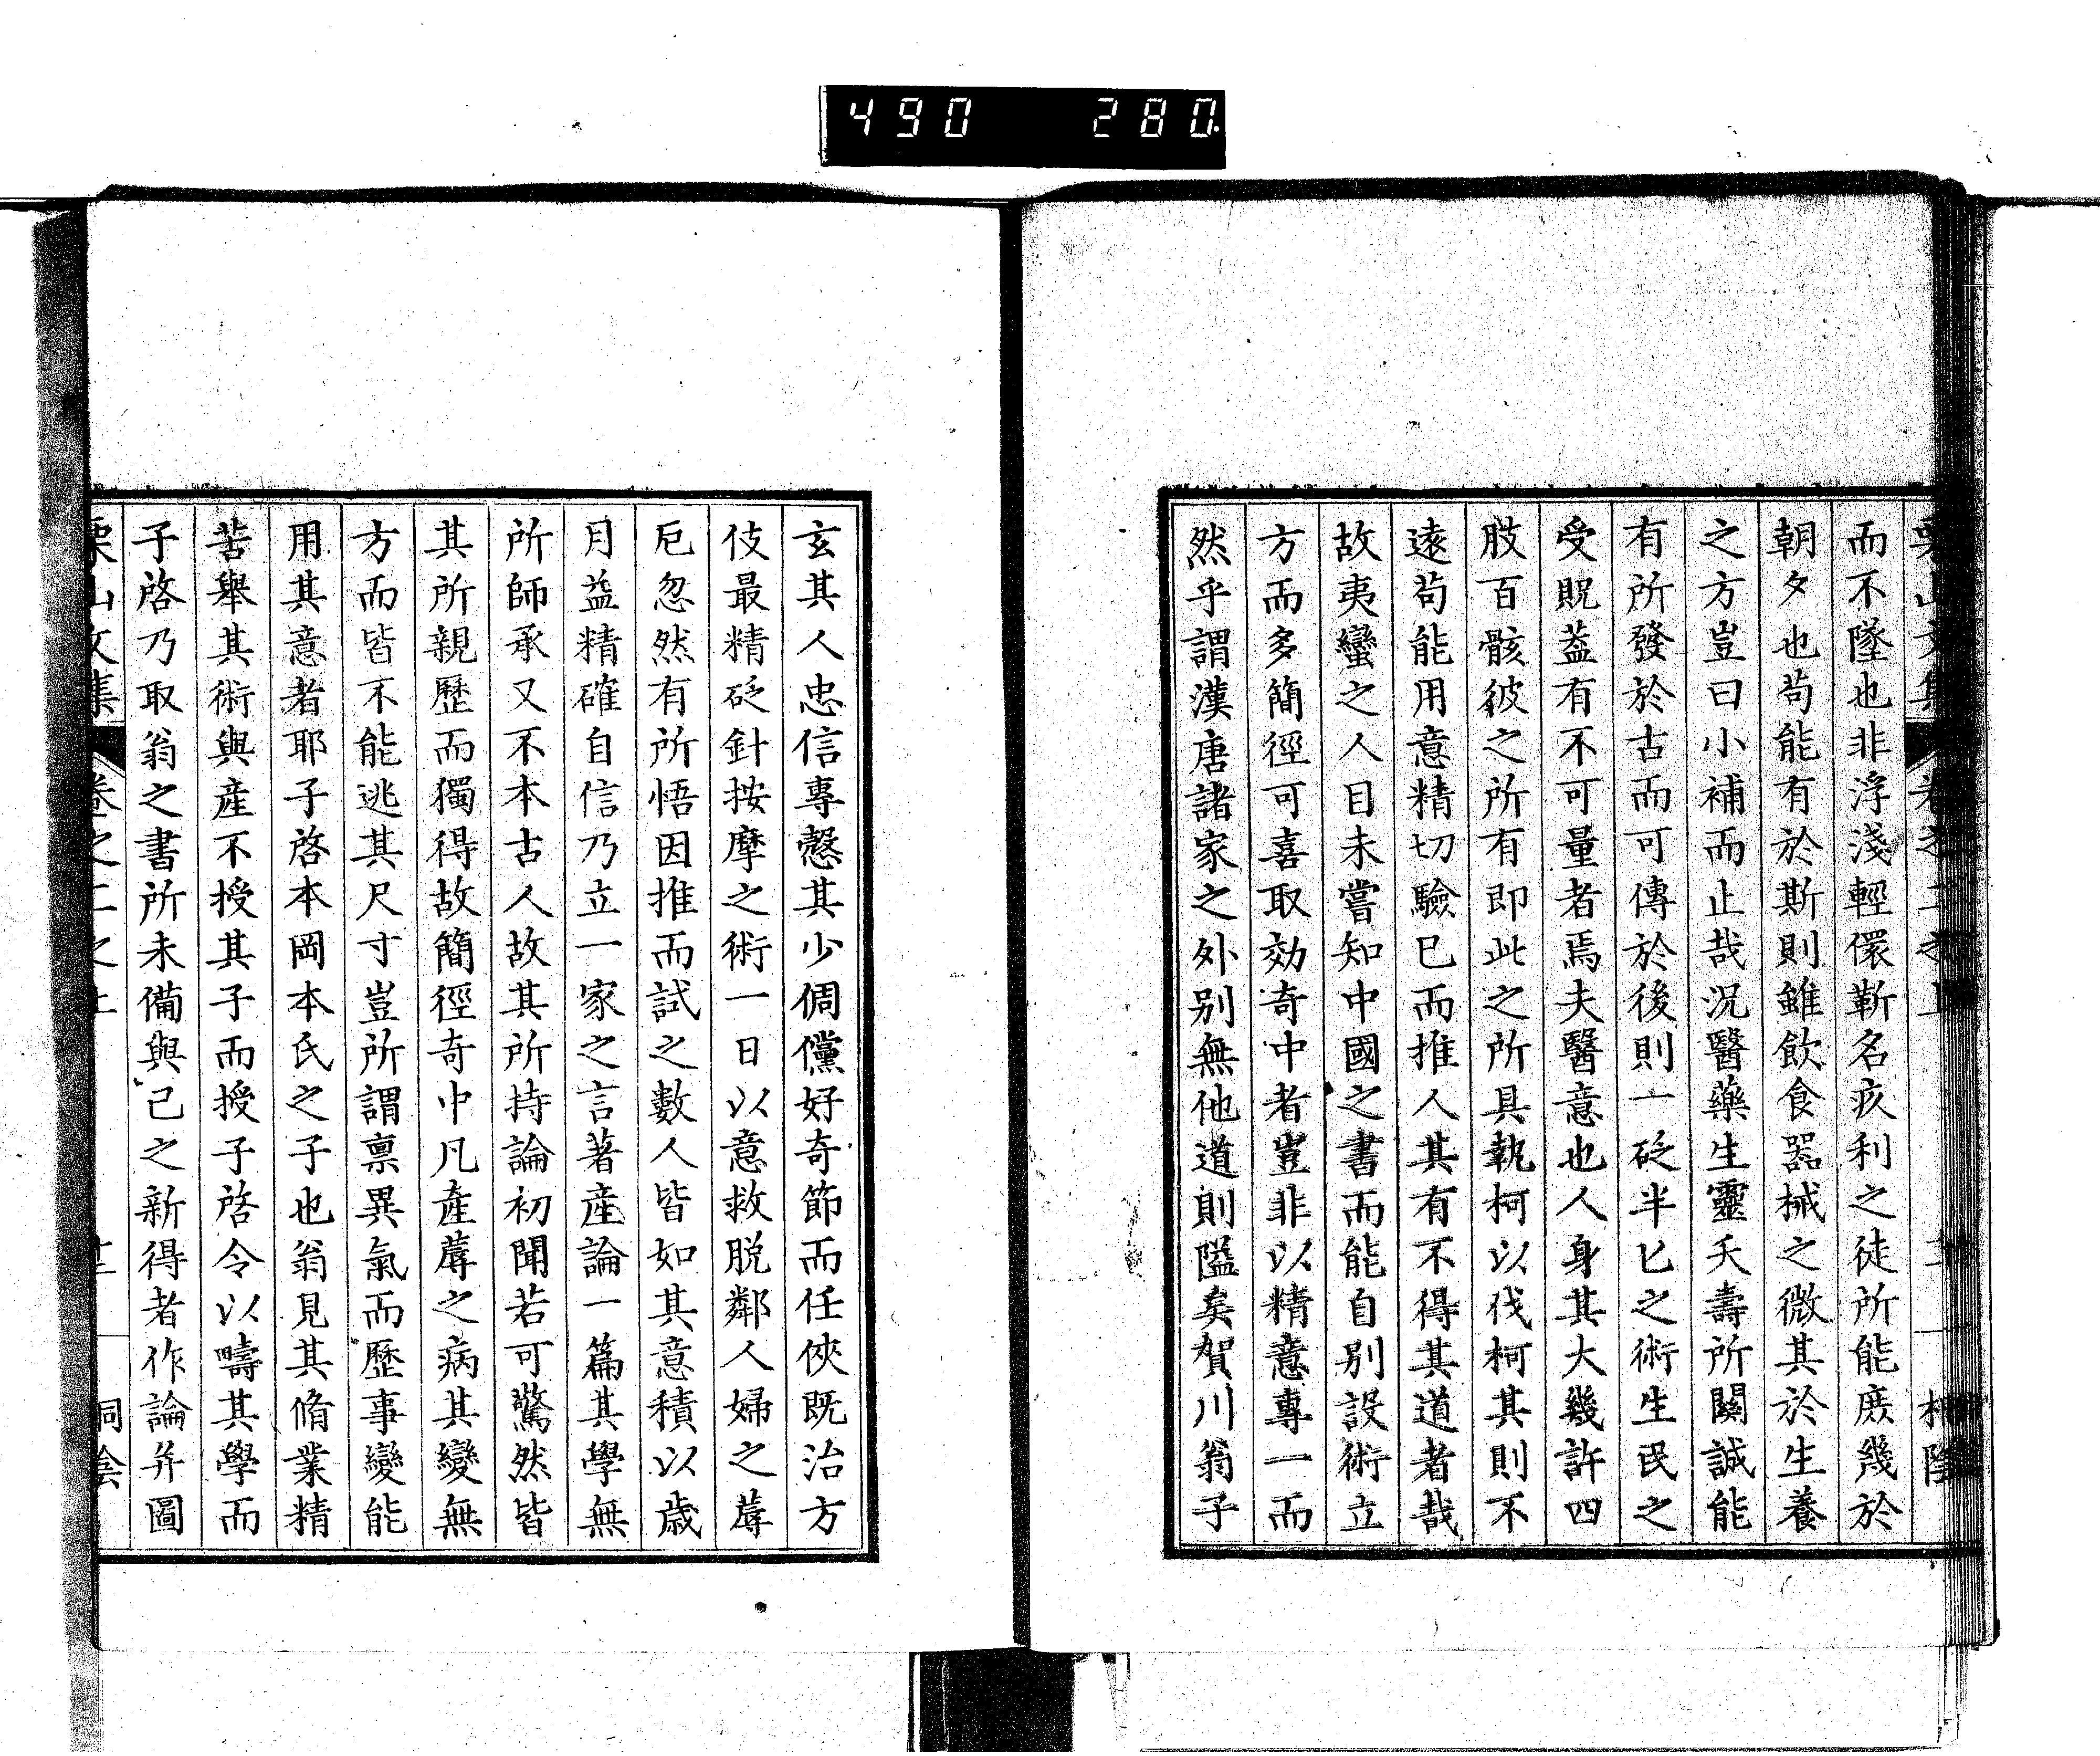 490 280
栗山文集 卷之二之上
而不墜也非浮淺輕儇靳名疚利之徒所能庶幾於
朝夕也苟能有於斯則雖飲食器械之微其於生養
之方豈曰小補而止哉況醫藥生靈夭壽所關誠能
有所發於古而可傳於後則一砭半匕之術生民之
受貺益有不可量者焉夫醫意也人身其大幾許四
肢百骸彼之所有即此之所具執柯以伐柯其則不
遠苟能用意精切驗已而推人其有不得其道者哉
故夷蠻之人目未嘗知中國之書而能自別設術立
方而多簡徑可喜取効奇中者豈非以精意專一而
然乎謂漢唐諸家之外別無他道則隘矣賀川翁子
玄其人忠信專慤其少倜儻好奇節而任俠既治方
伎最精砭針按摩之術一日以意救脫鄰人婦之蓐
厄忽然有所悟因推而試之數人皆如其意積以歲
月益精確自信乃立一家之言著產論一篇其學無
所師承又不本古人故其所持論初聞若可驚然皆
其所親歷而獨得故簡徑奇中凡產蓐之病其變無
方而皆不能逃其尺寸豈所謂禀異氣而歷事變能
用其意者耶子啓本岡本氏之子也翁見其脩業精
苦舉其術與產不授其子而授子啓令以疇其學而
子啓乃取翁之書所未備與己之新得者作論并圖
栗山文集 卷之二之上 桐陰